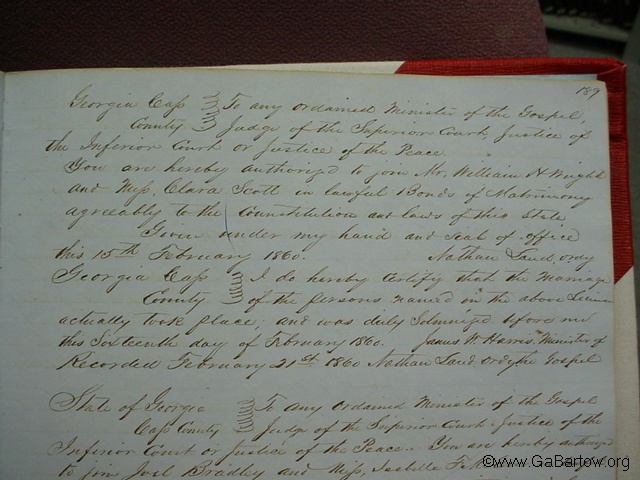 189
Georgia Cass To any ordained Minister of the Gospel,
County Judge of the Superior Court, Justice of
the Inferior Court or Justice of the Peace
You are hereby authorized to join Mr. William H Wright
and Miss, Clara Scott in lawful Bonds of Matrimony
agreeably to the Constitution and laws of this State
Given under my hand and seal of office
this 15th February 1860. Nathan Land, Ordy
Georgia Cass I do hereby Certify that the Marriage
County of the persons named in the above
actually took place, and was duly Solmnized before me
this Sixteenth day of February 1860. James W. Harris, Minister of
Recorded February 21st 1860 Nathan Land, Ordy the Gospel
State of Georgia To any ordained Minister of the Gospel
Cass County Judge of the Superior Court, Justice of the
Inferior Court or Justice of the Peace. You are hereby authorized
to join Joel Bradley and Miss, Isabella
©www.GaBartow.org